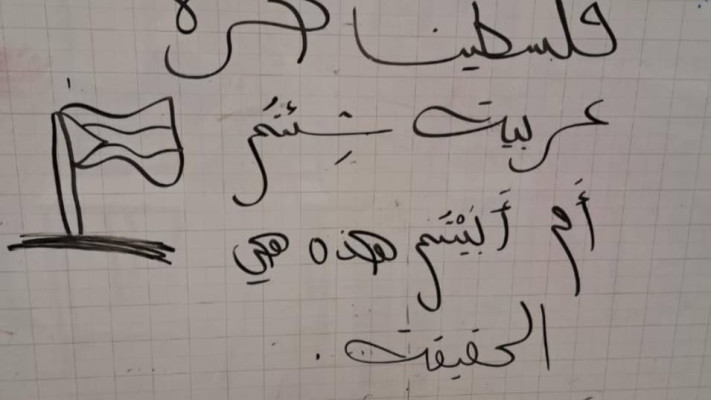 فلسطين حرة
عربية شِئتُم
أَم أَبَيْتُم هذه هي
الحقيقة.